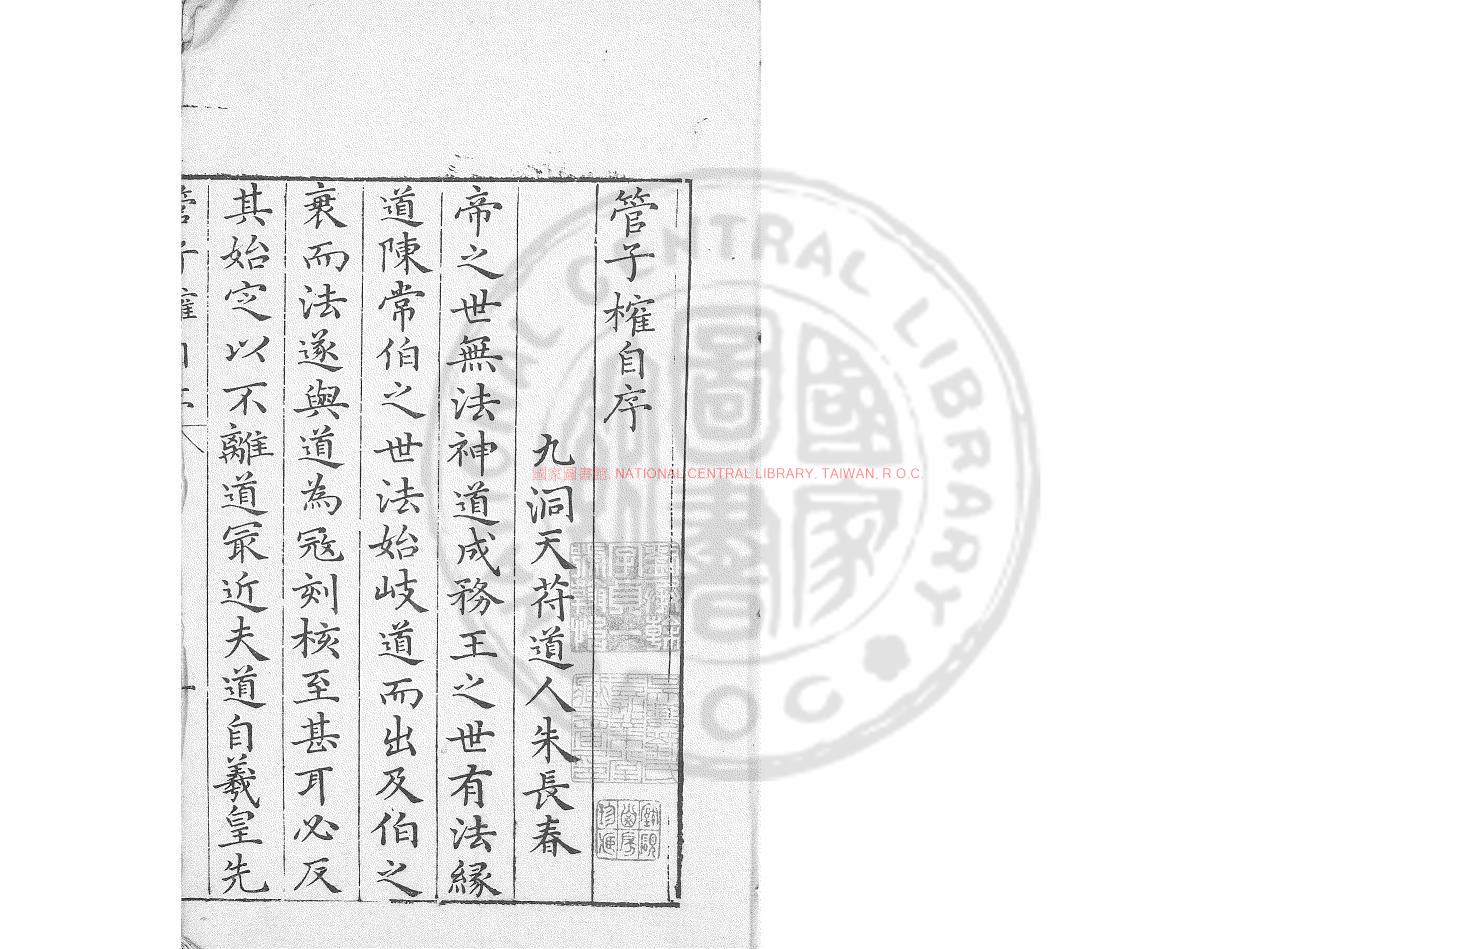 管子榷自序
九洞天荐道人朱長春
帝之世無法神道成務王之世有法緣
道陳常伯之世法始岐道而出及伯之
衰而法遂與道為寇刻核至甚耳必反
其始定以不離道冣近夫道自羲皇先
管子榷自序
一
國家圖書館, NATIONAL CENTRAL LIBRARY, TAIWAN, R.O.C.
NATIONAL CENTRAL LIBRARY
R O C
國家圖書館